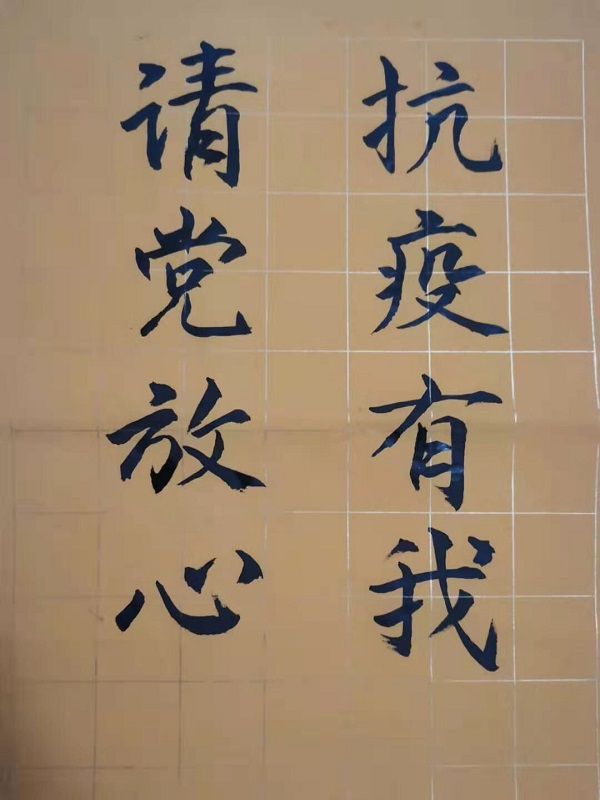 抗疫有我
请党放心